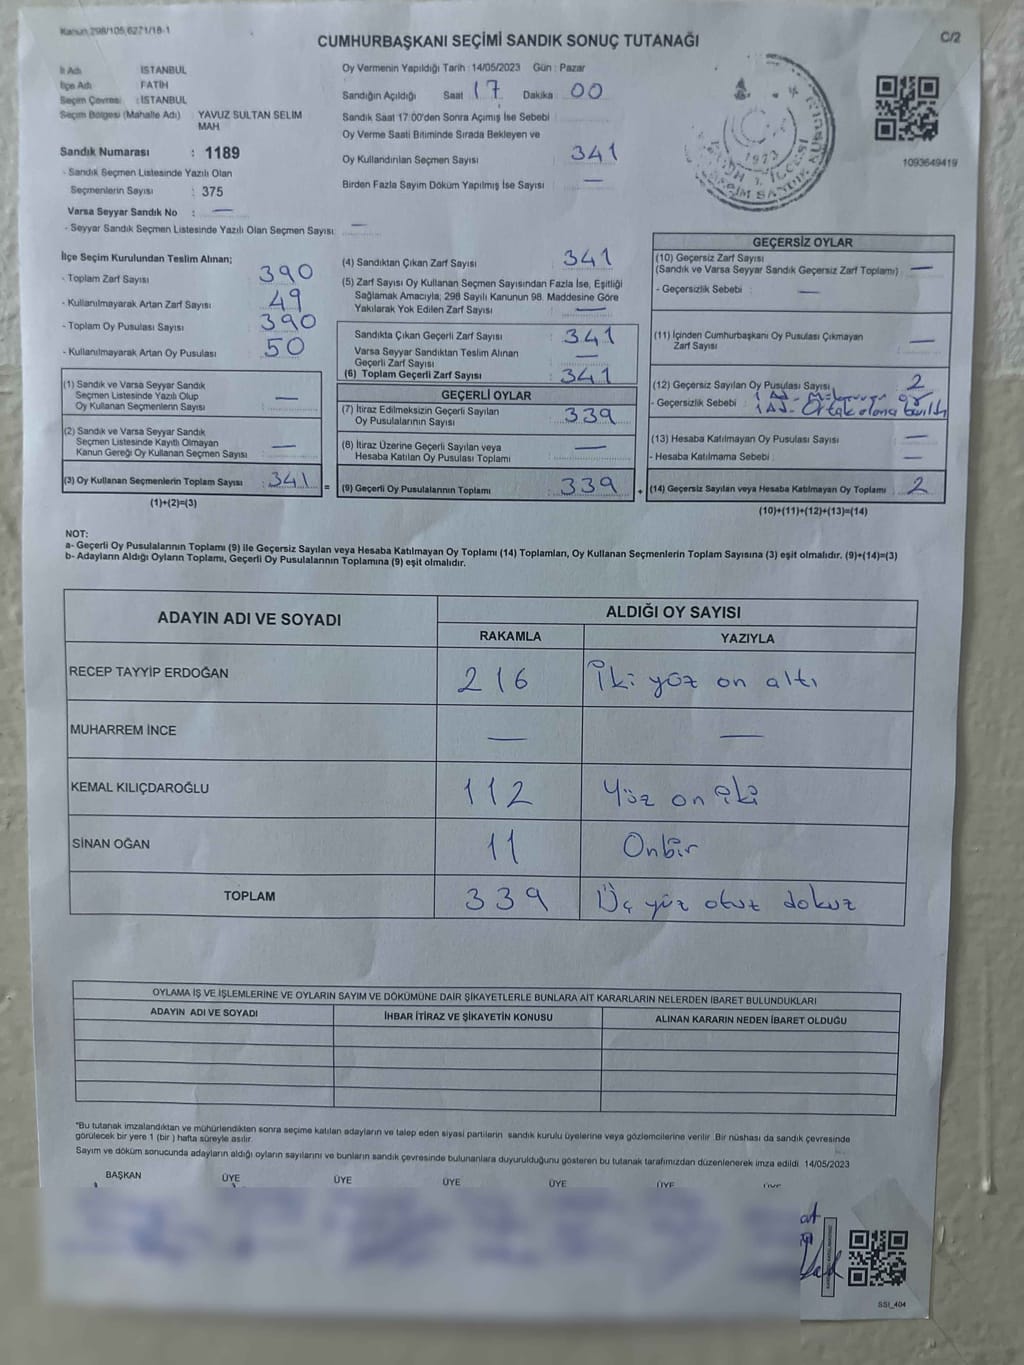 Kanun 298/105,6271/18-1
C/2
CUMHURBAŞKANI SEÇİMİ SANDIK SONUÇ TUTANAĞI
İl Adı İSTANBUL
İlçe Adı FATİH
Seçim Çevresi : İSTANBUL
Seçim Bölgesi (Mahalle Adı) YAVUZ SULTAN SELİM
MAH
Sandık Numarası : 1189
- Sandık Seçmen Listesinde Yazılı Olan
Seçmenlerin Sayısı : 375
Varsa Seyyar Sandık No : —
- Seyyar Sandık Seçmen Listesinde Yazılı Olan Seçmen Sayısı: —
Oy Vermenin Yapıldığı Tarih : 14/05/2023 Gün : Pazar
Sandığın Açıldığı Saat 17 Dakika 00
Sandık Saat 17:00'den Sonra Açımış İse Sebebi
Oy Verme Saati Bitiminde Sırada Bekleyen ve
Oy Kullandırılan Seçmen Sayısı 341
Birden Fazla Sayım Döküm Yapılmış İse Sayısı —
1093649419
İlçe Seçim Kurulundan Teslim Alınan;
- Toplam Zarf Sayısı : 390
- Kullanılmayarak Artan Zarf Sayısı : 49
- Toplam Oy Pusulası Sayısı : 390
- Kullanılmayarak Artan Oy Pusulası : 50
(1) Sandık ve Varsa Seyyar Sandık
Seçmen Listesinde Yazılı Olup
Oy Kullanan Seçmenlerin Sayısı : —
(2) Sandık ve Varsa Seyyar Sandık
Seçmen Listesinde Kayıtlı Olmayan
Kanun Gereği Oy Kullanan Seçmen Sayısı : —
(3) Oy Kullanan Seçmenlerin Toplam Sayısı : 341 =
(1)+(2)=(3)
(4) Sandıktan Çıkan Zarf Sayısı : 341
(5) Zarf Sayısı Oy Kullanan Seçmen Sayısından Fazla İse, Eşitliği
Sağlamak Amacıyla, 298 Sayılı Kanunun 98. Maddesine Göre
Yakılarak Yok Edilen Zarf Sayısı : —
Sandıkta Çıkan Geçerli Zarf Sayısı : 341
Varsa Seyyar Sandıktan Teslim Alınan
Geçerli Zarf Sayısı : —
(6) Toplam Geçerli Zarf Sayısı : 341
GEÇERLİ OYLAR
(7) İtiraz Edilmeksizin Geçerli Sayılan
Oy Pusulalarının Sayısı : 339
(8) İtiraz Üzerine Geçerli Sayılan veya
Hesaba Katılan Oy Pusulası Toplamı : —
(9) Geçerli Oy Pusulalarının Toplamı : 339 +
GEÇERSİZ OYLAR
(10) Geçersiz Zarf Sayısı
(Sandık ve Varsa Seyyar Sandık Geçersiz Zarf Toplamı) —
- Geçersizlik Sebebi : —
(11) İçinden Cumhurbaşkanı Oy Pusulası Çıkmayan
Zarf Sayısı : —
(12) Geçersiz Sayılan Oy Pusulası Sayısı : 2
- Geçersizlik Sebebi :
(13) Hesaba Katılmayan Oy Pusulası Sayısı : —
- Hesaba Katılmama Sebebi : —
(14) Geçersiz Sayılan veya Hesaba Katılmayan Oy Toplamı : 2
(10)+(11)+(12)+(13)=(14)
NOT:
a- Geçerli Oy Pusulalarının Toplamı (9) ile Geçersiz Sayılan veya Hesaba Katılmayan Oy Toplamı (14) Toplamları, Oy Kullanan Seçmenlerin Toplam Sayısına (3) eşit olmalıdır. (9)+(14)=(3)
b- Adayların Aldığı Oyların Toplamı, Geçerli Oy Pusulalarının Toplamına (9) eşit olmalıdır.
ADAYIN ADI VE SOYADI ALDIĞI OY SAYISI
RAKAMLA YAZIYLA
RECEP TAYYİP ERDOĞAN 216 İki yüz on altı
MUHARREM İNCE — —
KEMAL KILIÇDAROĞLU 112 Yüz on iki
SİNAN OĞAN 11 Onbir
TOPLAM 339 Üç yüz otuz dokuz
OYLAMA İŞ VE İŞLEMLERİNE VE OYLARIN SAYIM VE DÖKÜMÜNE DAİR ŞİKAYETLERLE BUNLARA AİT KARARLARIN NELERDEN İBARET BULUNDUKLARI
ADAYIN ADI VE SOYADI İHBAR İTİRAZ VE ŞİKAYETİN KONUSU ALINAN KARARIN NEDEN İBARET OLDUĞU
"Bu tutanak imzalandıktan ve mühürlendikten sonra seçime katılan adayların ve talep eden siyasi partilerin sandık kurulu üyelerine veya gözlemcilerine verilir Bir nüshası da sandık çevresinde
görülecek bir yere 1 (bir ) hafta süreyle asılır.
Sayım ve döküm sonucunda adayların aldığı oyların sayılarını ve bunların sandık çevresinde bulunanlara duyurulduğunu gösteren bu tutanak tarafımızdan düzenlenerek imza edildi 14/05/2023
BAŞKAN ÜYE ÜYE ÜYE ÜYE ÜYE ÜYE
SSİ_404